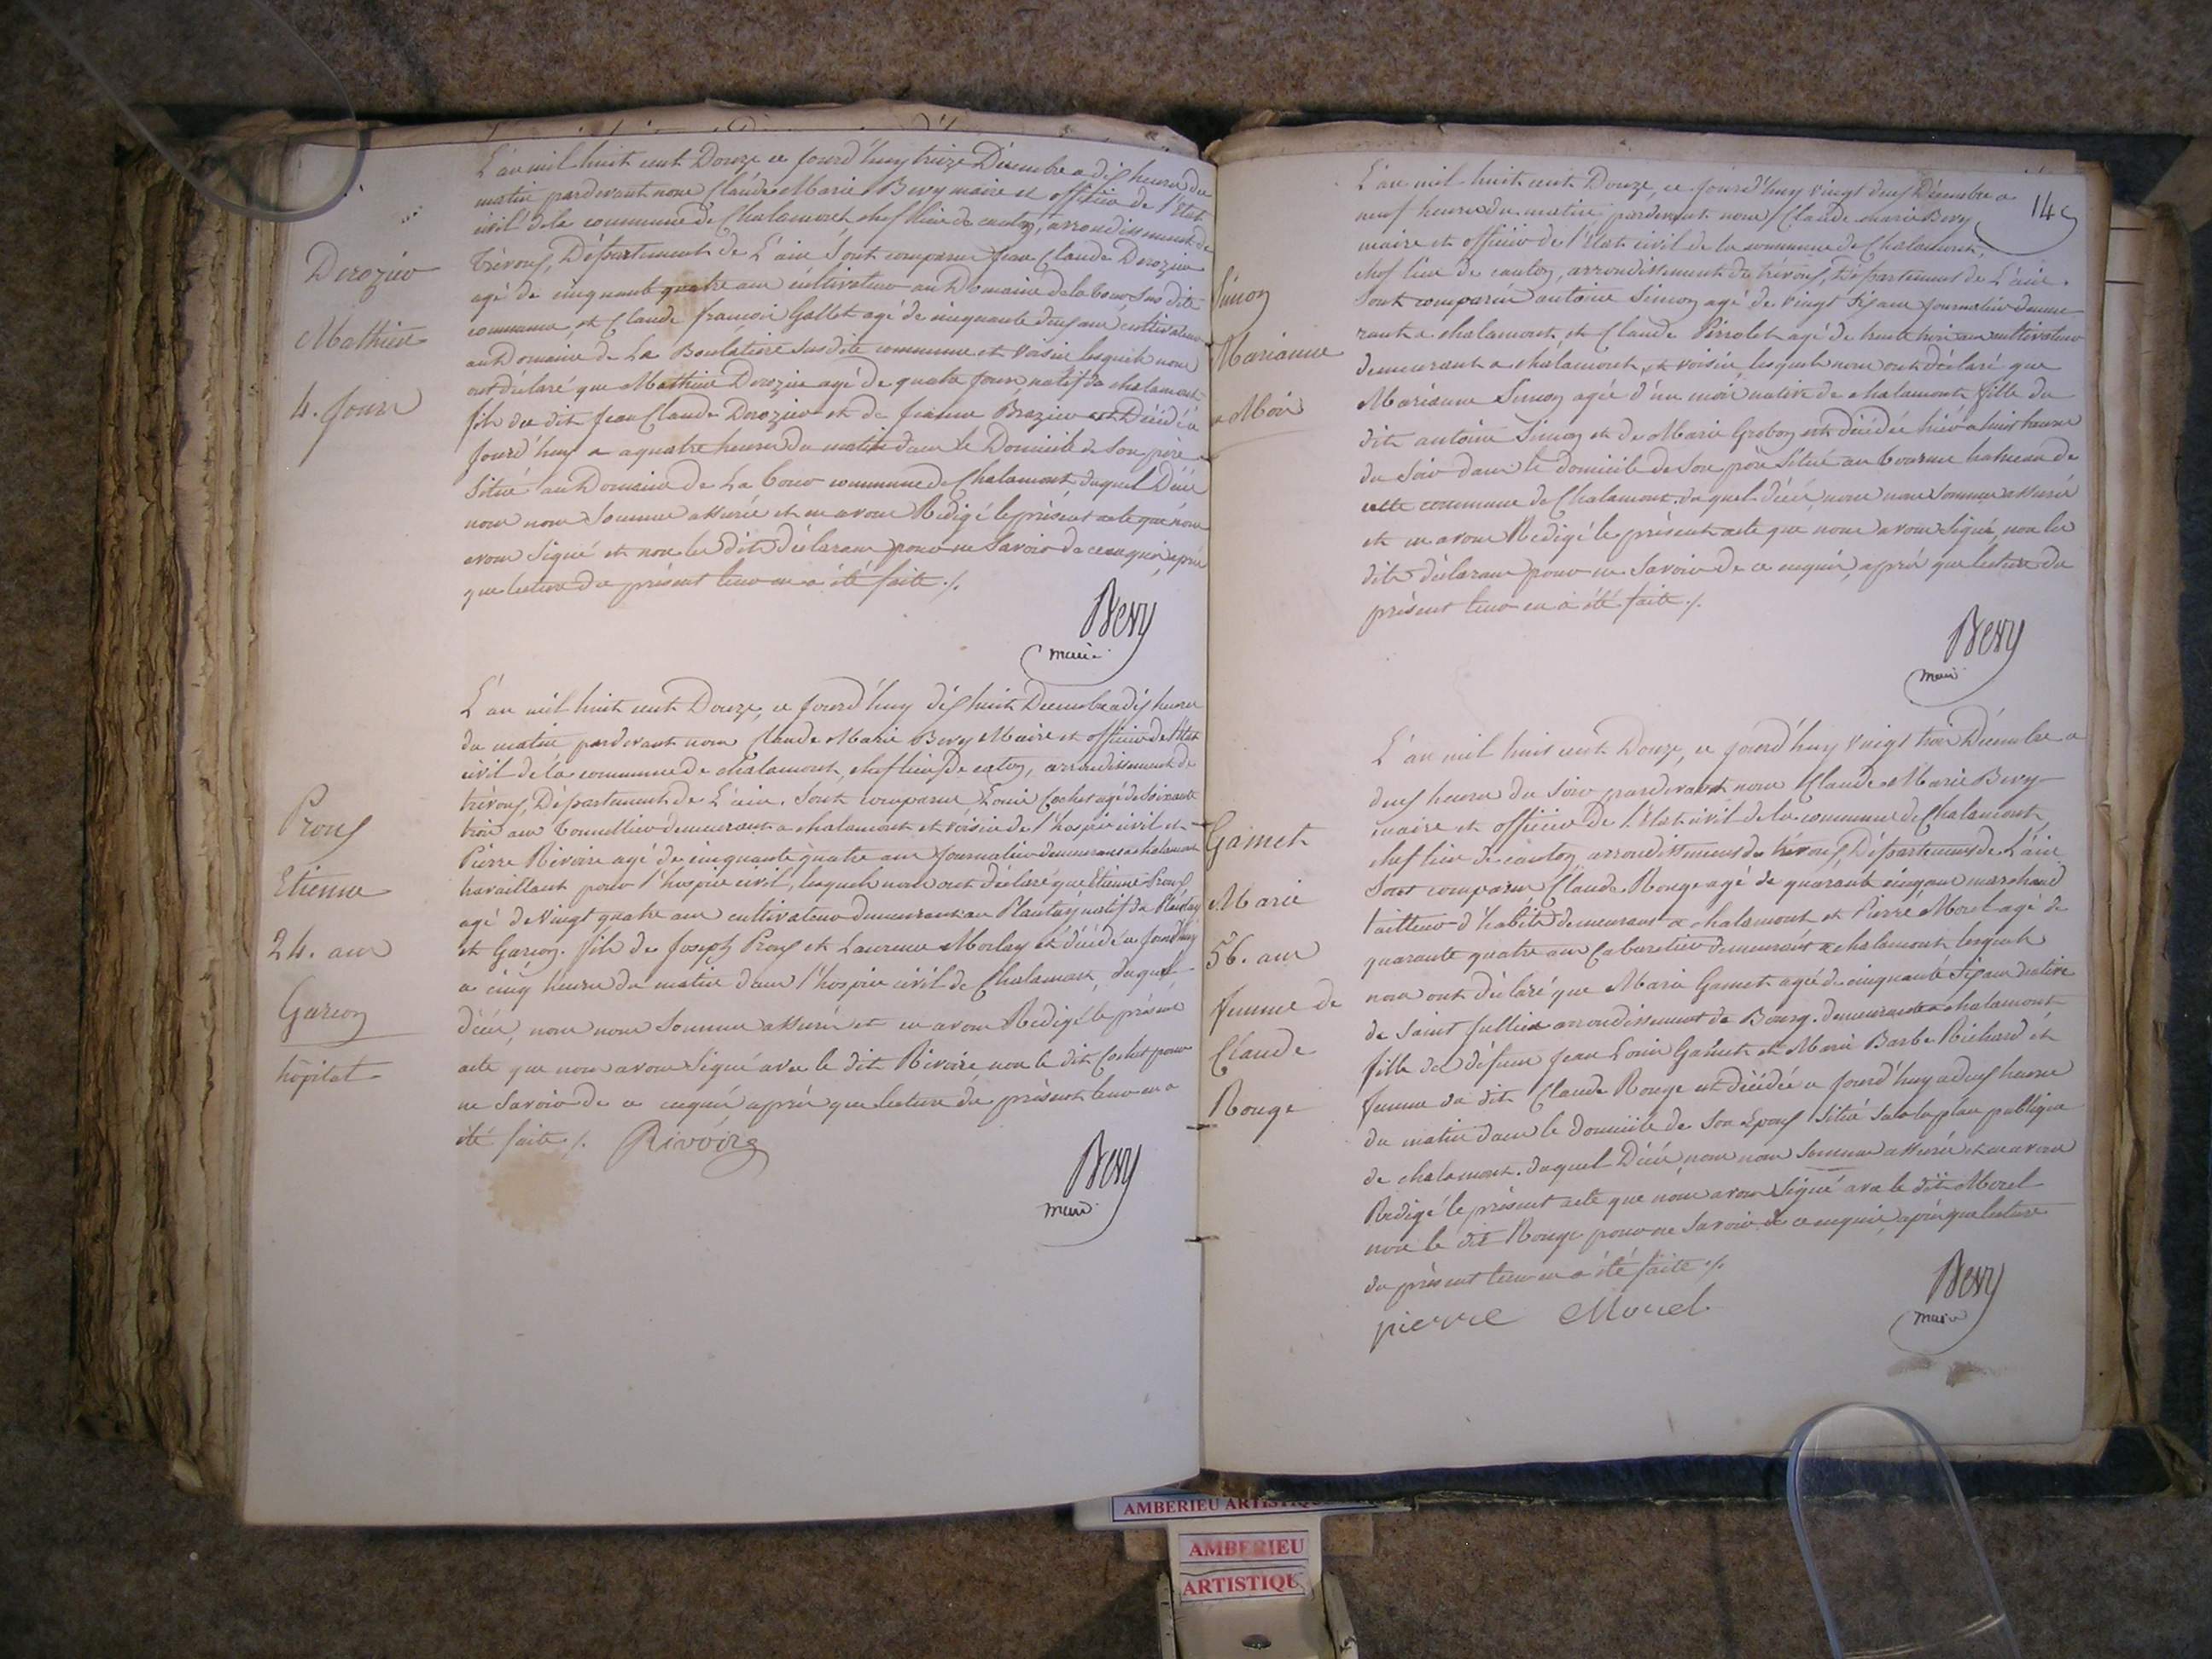 L'an mil huit cent Douze ce jourd'huy treize Décembre a dix heures du
matin pardevant nous Claude Marie Bevy maire et officier de l'Etat
civil de la commune de Chalamont chef lieu de canton, arrondissement de
trévoux, Département de L'ain Sont comparus Jean Claude Derozier
agé de cinquante quatre ans cultivateur au Domaine de la Cour susdite
commune et Claude françois Gallet agé de cinquante deux ans cultivateur
au Domaine de La susdite commune et voisin lesquels nous
ont déclaré que Mathieu Derozier agé de quatre jours natif de chalamont
fils du dit Jean Claude Derozier et de Brazier est Décédé a
jourd'huy a quatre heures du matin dans le Domicile de son père
Situé au Domaine de La Cour commune de Chalamont duquel Décé
nous nous sommes assurés et en avons Redigé le présent acte que nous
avons signé et non les dits déclarans pour ne savoir de ce enquis, après
que lecture du présent leur en a été faite ./.
Derozier
Mathieu
4. jours
Bevy
maire
L'an mil huit cent Douze, ce jourd'huy dix huit Décembre a dix heures
du matin pardevant nous Claude Marie Bevy Maire et officier de l'Etat
civil de la commune de chalamont, chef lieu de caton, arrondissement de
trévoux, Département de L'ain. Sont comparus Louis Cochet agé de soixante
trois ans Tonnellier demeurant a chalamont et voisin de l'hospice civil et
Pierre Rivoire agé de cinquante quatre ans journalier demeurant a chalamont
travaillant pour l'hospice civil, lesquels nous ont déclaré que Etienne Proux
agé de vingt quatre ans cultivateur demeurant au Plantay natif du Plantay
et Garcon. fils de Joseph Proux et Laurence Morlay est décédé a jourd'huy
a cinq heures du matin dans l'hospice civil de Chalamont, duquel
décé, nous nous Sommes assurés et en avons Redigé le présent
acte que nous avons signé avec le dit Rivoire non le dit Cochet pour
ne Savoir de ce enquis après que lecture du présent leur en a
été faite ./. Rivoire
Proux
Etienne
24. ans
Garcon
hôpital
Bevy
maire
149
L'an mil huit cent Douze, ce jourd'huy vingt deux Décembre a
neuf heures du matin, pardevant nous Claude Marie Bevy
maire et officier de l'Etat civil de la commune de Chalamont,
chef lieu de canton, arrondissement de trévoux, Département de L'ain.
Sont comparus antoine Simon agé de vingt six ans journalier demeu
rant a chalamont, et Claude Perrolet agé de trente trois ans cultivateur
demeurant a chalamont, et voisin, lesquels nous ont déclaré que
Marianne Simon agée d'un mois native de chalamont fille du
dit antoine Simon et de Marie Grobon est décédée hier a huit heures
du Soir dans le domicile de son père Situé au hameau de
cette commune de Chalamont. duquel décé, nous nous sommes assurés
et en avons Redigé le présent acte que nous avons signé, non les
dits déclarans pour ne savoir de ce enquis, après que lecture du
présent leur en a été faite ./.
Simon
Marianne
Mois
Bevy
maire
L'an mil huit cent Douze, ce jourd'huy vingt trois Décembre a
deux heures du Soir pardevant nous Claude Marie Bevy
maire et officier de l'Etat civil de la commune de Chalamont,
chef lieu de canton arrondissement de trévoux, Département de L'ain
Sont comparus Claude Rouge agé de quarante cinq ans marchand
tailleur d'habits demeurant a chalamont, et Pierre Morel agé de
quarante quatre ans Cabaretier demeurant a chalamont lesquels
nous ont déclaré que Marie Gamet agée de cinquante six ans native
de Saint Jullien arrondissement de Bourg. demeurante a chalamont
fille des défuns Jean Louis Gamet et Marie Barbe Richard et
femme du dit Claude Rouge est décédée a jourd'huy a deux heures
du matin dans le domicile de son Epoux situé Sur la place publique
de chalamont. duquel Décé, nous nous sommes assurés et en avons
Redigé le présent acte que nous avons signé avec le dit Morel
non le dit Rouge pour ne savoir de ce enquis, après que lecture
du présent leur en a été faite ./.
Gamet
Marie
56. ans
femme de
Claude
Rouge
pierre Morel
Bevy
maire
AMBERIEU ARTISTIQUE
AMBERIEU
ARTISTIQU